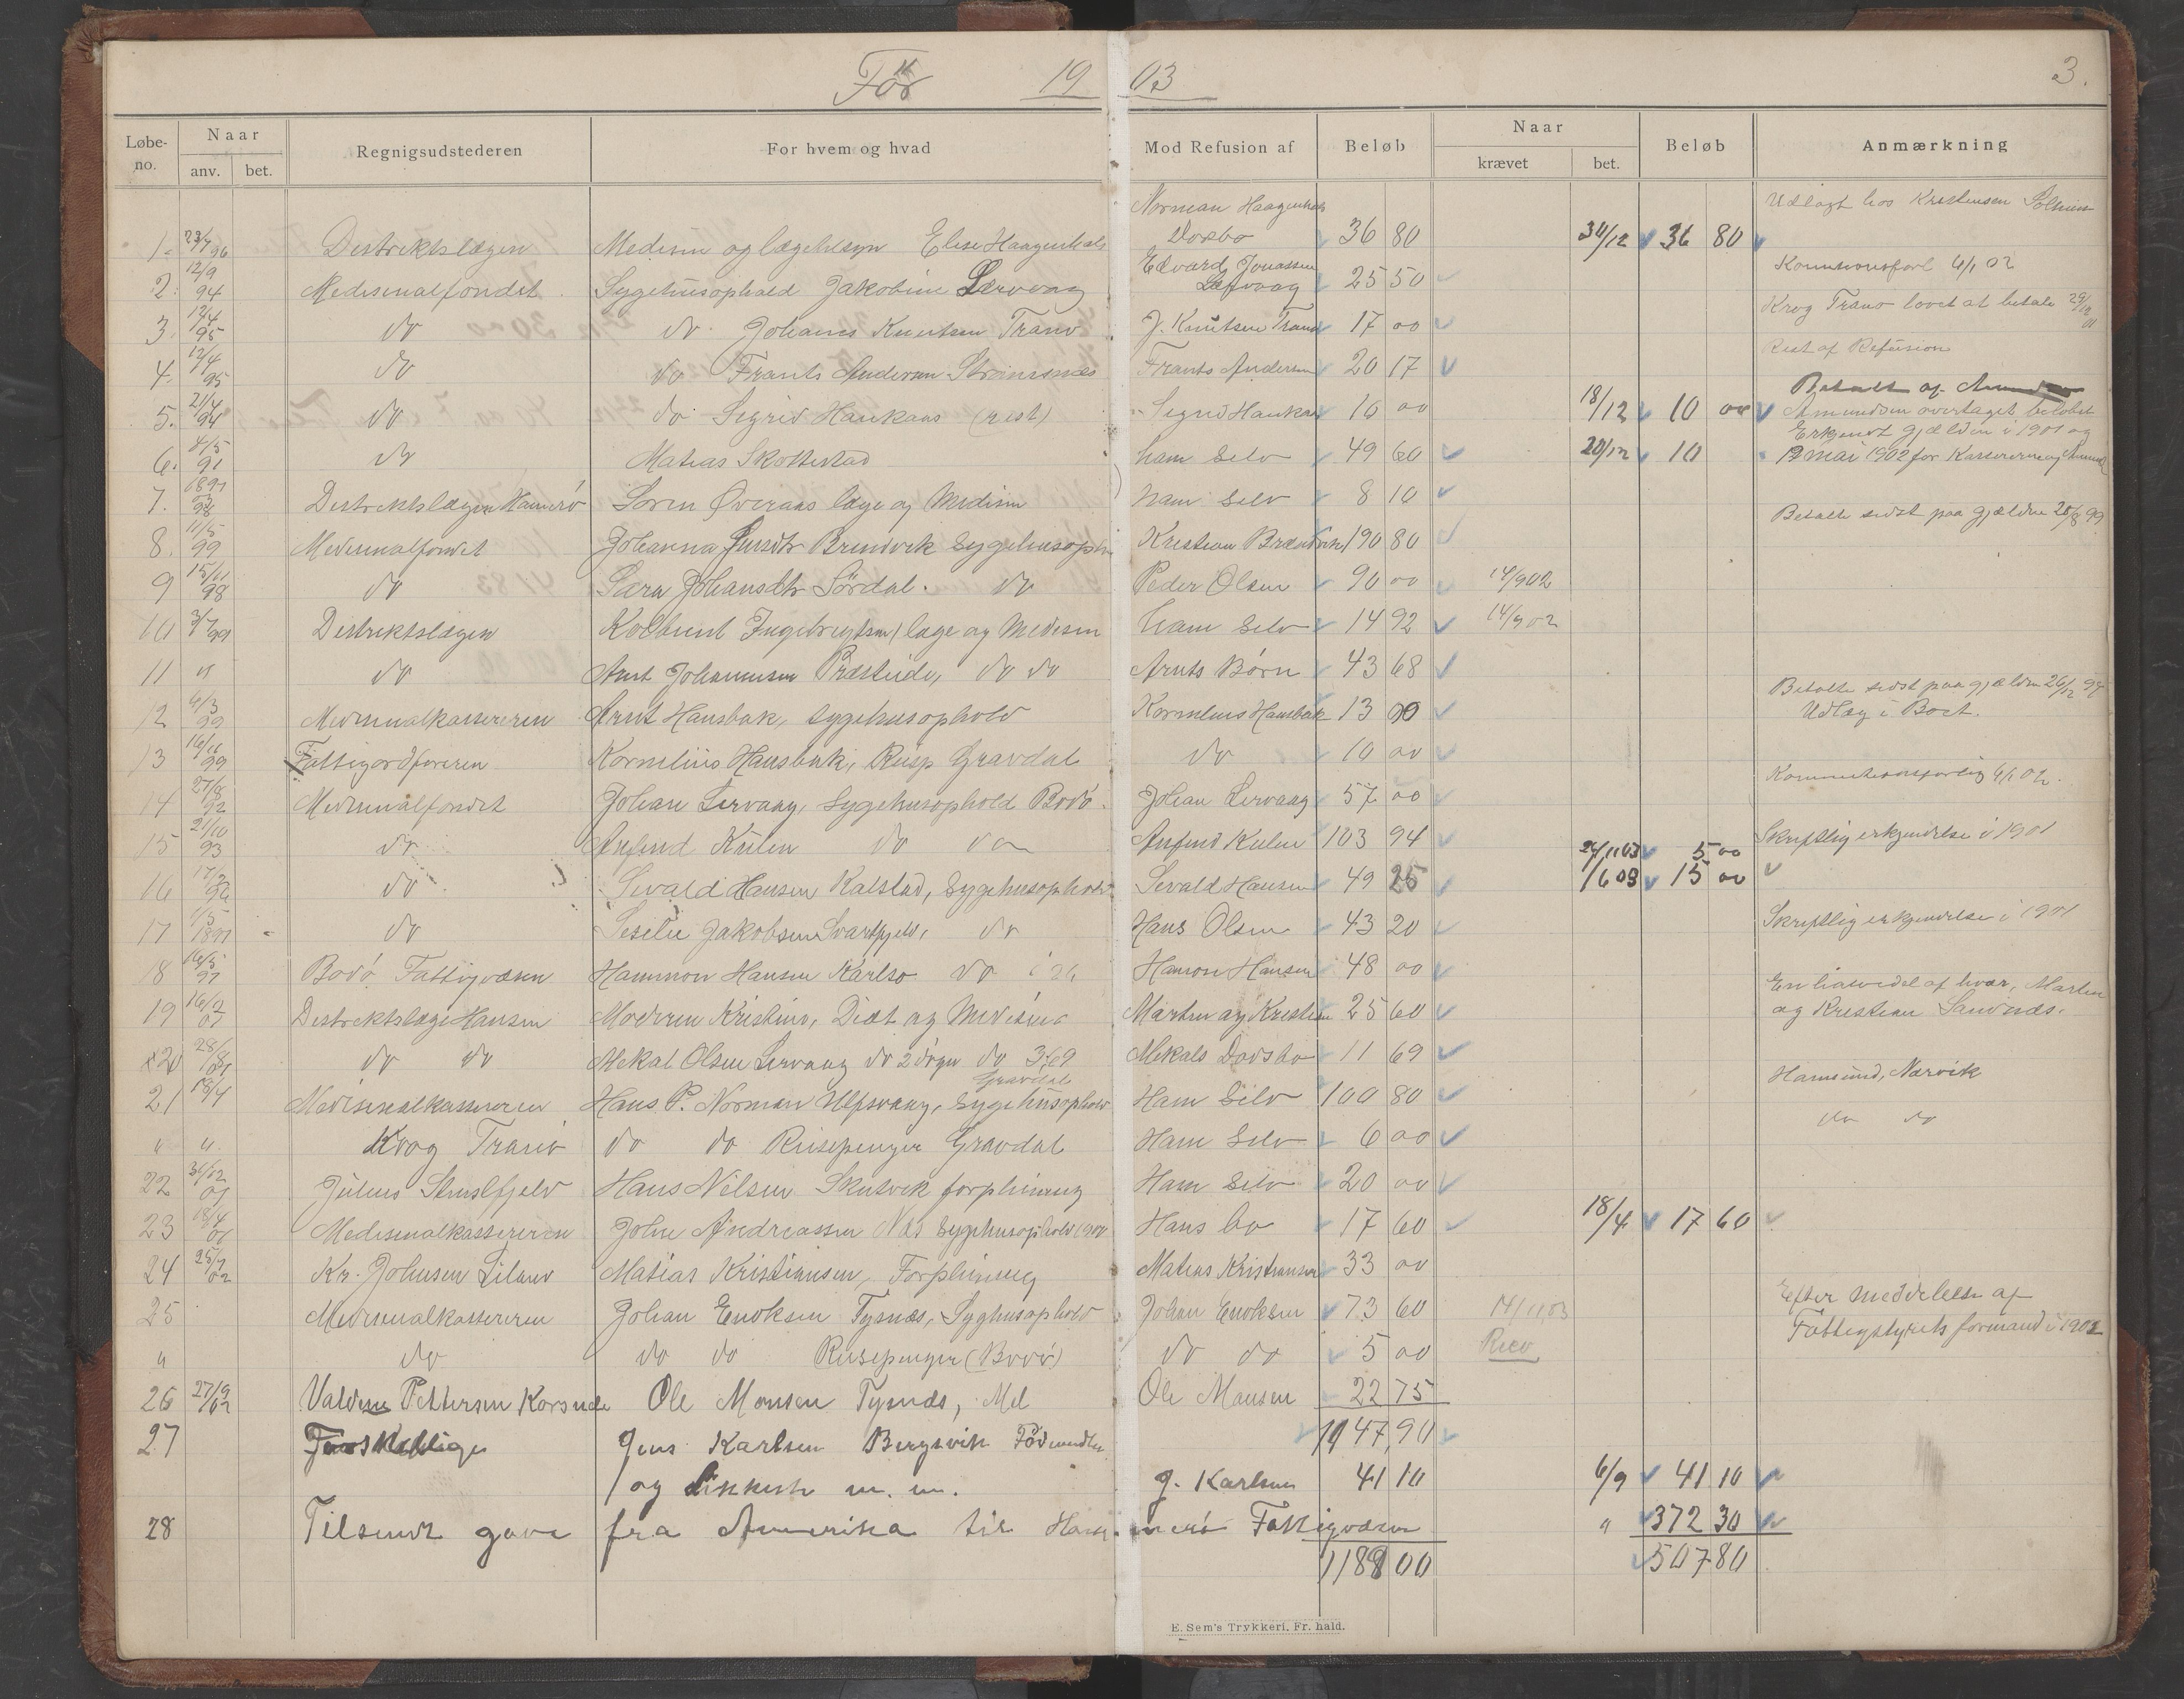 För 1903 3.
Løbe-no. Naar anv. bet. Regnigsudstederen For hvem og hvad Mod Refusion af Beløb Naar krævet bet. Beløb Anmærkning
Norman Haagenhals Udlagt hos Kristensen
1. 23/7 96 Destriktslægen Medisin og lægetilsyn Elise Haagenhals Dosbo 36 80 30/12 36 80
Edvard Jonassen Komisionsforl 4/1 02
2. 12/9 94 Medisinalfondet Sygehusophold Jakobine Lervaag Lervaag 25 50
Krog Tranö lovet at betale 29/12 01
3. 12/4 95 do do Johanes Knutsen Tranö J. Knutsen Tranö 17 00
Rest af Refusion
4. 12/4 95 do do Frants Andersen Strömsnes Frants Andersen 20 17
Betalt af
5. 21/4 94 do do Sigrid Haukaas (rest) Sigrid Haukaas 16 00 18/12 10 00 Amundsen overtaget beløbet
Erkjendt gjælden i 1901 og
6. 4/5 91 do Matias Skottestad ham Selv 49 60 20/12 10 12 mai 1902 for Kassereren og Amund
7. 1897 98 Destriktslægen Hamerö Sören Överaas læge og Medisin ham Selv 8 10
Betalte sidst paa gjælden 28/8 99
8. 11/5 99 Medisinalfondet Johanna Jensdtr Brendvik Sygehusophh Kristian Brændvik 190 80
9 15/11 98 do Sara Johansdtr Sördal. do Peder Olsen 90 00 14/9 02
10 3/7 99 Destriktslægen Kolbent Ingebrigtsen, læge og Medisin ham Selv 14 92 14/9 02
11 " do Arnt Johannesen Præsteide, do do Arnts Børn 43 68
Betalte sidst paa gjælden 26/12 97
12 6/3 99 Medisinalkassereren Arnt Hansbak, Sygehusophold Kornelius Hansbak 13 00 Udlæg i Boet.
13 16/6 99 Fattigordføreren Kornelius Hansbak, Reisp Gravdal do 10 00
14 27/8 92 Medisinalfondet Johan Lervaag, Sygehusophold Bodö. Johan Lervaag 57 00 Kommisionsforlig 4/1 02.
15 21/10 93 do Anfind Kulen do do Anfind Kulen 103 94 Skriftlig erkjendelse i 1901
24/1 03 5 00
16 96 do Sevald Hansen Kalstad, Sygehusophold Sevald Hansen 49 25 1/6 03 15 00
17 1/5 1897 do Sesilie Jakobsen Svartfjeld, do Hans Olsen 43 20 Skriftlig erkjendelse i 1901
18 14/5 97 Bodö Fattigvæsen Hammon Hansen Karlsö do Hamon Hansen 48 00
En halvedel af hvær, Martin
19 16/2 01 Destriktslæge Hansen Modren Kristine, Diæt og Medisin Martin og Kristian 25 60 og Kristian Sandnæs.
x20 28/ do do Mekal Olsen Lervaag do 2 døgn do 3,69 Mekals Dødsbo 11 69
Gravdal Hamsund, Narvik
21 18/4 Medisinalkassereren Hans P. Norman Ulfsvaag, Sygehusophold Ham Selv 100 80
" " Krog Tranö do do Reisepenger Gravdal Ham Selv 6 00 do do
22 31/12 01 Julius Stensfjeld Hans Nilsen Skutvik forpleining Ham Selv 20 00
23 18/4 01 Medisinalkassereren John Andreassen Næs Sygehusophold 1900 Hans bo 17 60 18/4 17 60
24 25/7 02 Kr. Johnsen Matias Kristiansen, Forpleining Matias Kristiansen 33 00
25 Medisinalkassereren Johan Enoksen Tysnæs, Syghusophold Johan Enoksen 73 60 14/11,03 Efter meddelelse af
" do do do Reisepenger (Bodö) do do 5 00 Fattigstyrets formand i 1902
26 27/9 02 Valdem Pettersen Korsnæs Ole Monsen Tysnæs, Mel Ole Monsen 22 75
1147,90
27 Forskjellige Jens Karlsen Bergsvik Födemidler
og Likkiste m. m. J. Karlsen 41 10 6/9 41 10
28 Tilsendt gave fra Amerika til Hammerö Fattigvæsen " 372 30
1188 00 507 80
E. Sem's Trykkeri, Fr. hald.